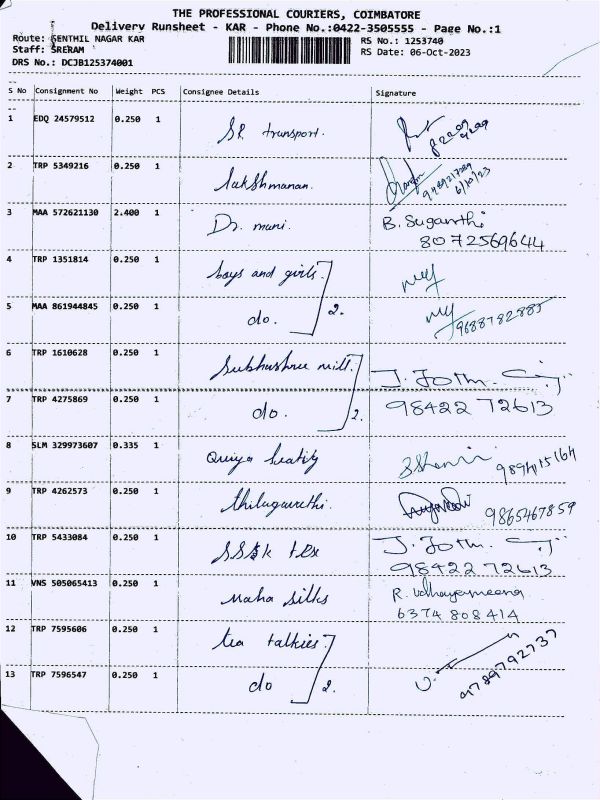 THE PROFESSIONAL COURIERS, COIMBATORE
Delivery Runsheet - KAR - Phone No.:0422-3505555 - Page No.:1
Route: SENTHIL NAGAR KAR RS No.: 1253740
Staff: SRERAM RS Date: 06-Oct-2023
DRS No.: DCJB125374001
S No Consignment No Weight PCS Consignee Details Signature
1 EDQ 24579512 0.250 1 SR transport.
2 TRP 5349216 0.250 1 Lakshmanan. 6/10/23
3 MAA 572621130 2.400 1 Dr. muni. B. Suganthi
8072569644
4 TRP 1351814 0.250 1 boys and girls.
5 MAA 861944845 0.250 1 do. 2. 9688782885
6 TRP 1610628 0.250 1 Subhashree mill. J. Jothi.
7 TRP 4275869 0.250 1 do. 2. 98422 72613
8 SLM 329973607 0.335 1
9 TRP 4262573 0.250 1 thilagavathi. 9865467859
10 TRP 5433084 0.250 1 SSSK tex J. Jothi.
98422 72613
11 VNS 505065413 0.250 1 Maha silks R. Udhayameena
6374 808 414
12 TRP 7595606 0.250 1 tea talkies.
13 TRP 7596547 0.250 1 do 2. 9789792737